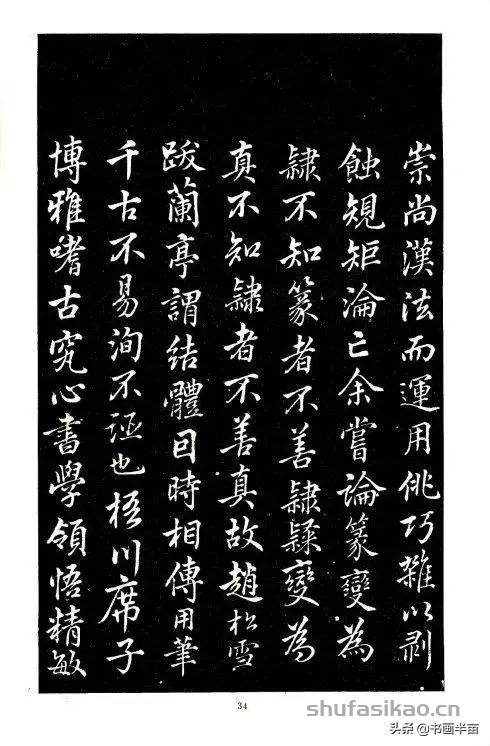 崇尚漢法而運用佻巧雜以剥
蝕規矩淪亡余嘗論篆變為
隸不知篆者不善隸隸變為
真不知隸者不善真故趙松雪
跋蘭亭謂結體因時相傳用筆
千古不易洵不誣也梧川席子
博雅嗜古究心書學領悟精敏
34
shufasikao.cn
头条@书画半亩